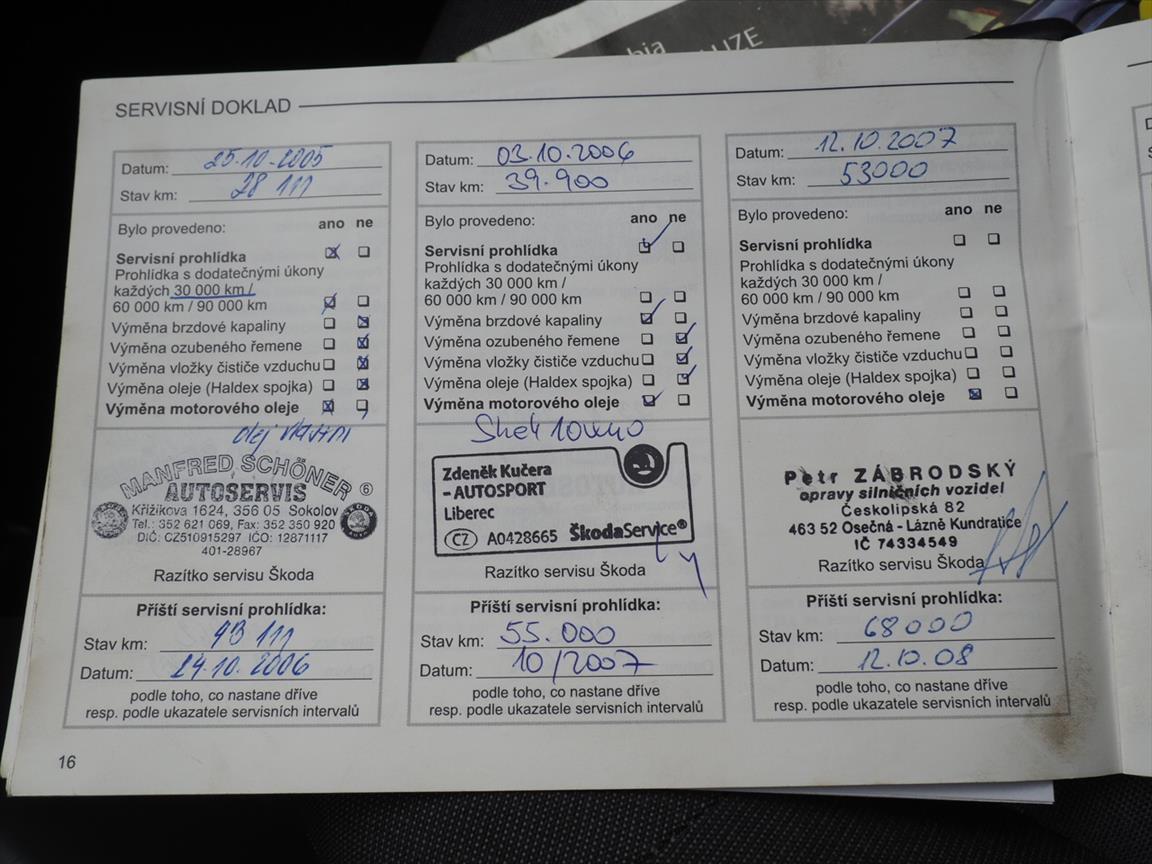 bia
SERVISNÍ DOKLAD
Datum: 25.10.2005
Stav km: 28 111
Bylo provedeno: ano ne
Servisní prohlídka
Prohlídka s dodatečnými úkony
každých 30 000 km /
60 000 km / 90 000 km
Výměna brzdové kapaliny
Výměna ozubeného řemene
Výměna vložky čističe vzduchu
Výměna oleje (Haldex spojka)
Výměna motorového oleje
olej vlastní
MANFRED SCHÖNER 6
AUTOSERVIS
Křižíkova 1624, 356 05 Sokolov
Tel.: 352 621 069, Fax: 352 350 920
DIČ: CZ510915297 IČO: 12871117
401-28967
Razítko servisu Škoda
Příští servisní prohlídka:
Stav km: 43 111
Datum: 24.10.2006
podle toho, co nastane dříve
resp. podle ukazatele servisních intervalů
Datum: 03.10.2006
Stav km: 39.900
Bylo provedeno: ano ne
Servisní prohlídka
Prohlídka s dodatečnými úkony
každých 30 000 km /
60 000 km / 90 000 km
Výměna brzdové kapaliny
Výměna ozubeného řemene
Výměna vložky čističe vzduchu
Výměna oleje (Haldex spojka)
Výměna motorového oleje
Shell 10W40
Zdeněk Kučera
- AUTOSPORT
Liberec
CZ A0428665 ŠkodaService®
Razítko servisu Škoda
Příští servisní prohlídka:
Stav km: 55.000
Datum: 10/2007
podle toho, co nastane dříve
resp. podle ukazatele servisních intervalů
Datum: 12.10.2007
Stav km: 53000
Bylo provedeno: ano ne
Servisní prohlídka
Prohlídka s dodatečnými úkony
každých 30 000 km /
60 000 km / 90 000 km
Výměna brzdové kapaliny
Výměna ozubeného řemene
Výměna vložky čističe vzduchu
Výměna oleje (Haldex spojka)
Výměna motorového oleje
Petr ZÁBRODSKÝ
opravy silničních vozidel
Českolipská 82
463 52 Osečná - Lázně Kundratice
IČ 74334549
Razítko servisu Škoda
Příští servisní prohlídka:
Stav km: 68000
Datum: 12.10.08
podle toho, co nastane dříve
resp. podle ukazatele servisních intervalů
16